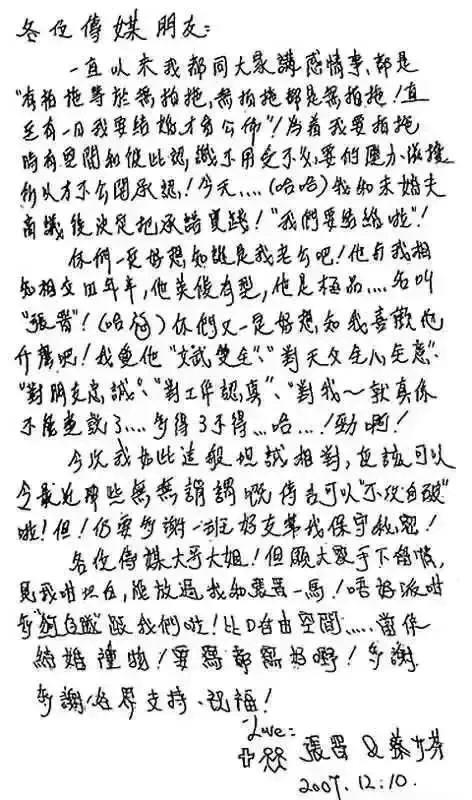 各位傳媒朋友：
一直以來我都同大家講感情事，都是
"有拍拖等於無拍拖，無拍拖都是無拍拖！直
至有一日我要結婚，才會公佈"！為着我要拍拖
時有空間和彼此認識不用受不必要的壓力滋擾
所以才不公開承認！今天....（哈哈）我和未婚夫
商議後決定把承諾實踐！"我們要結婚啦"！
你們一定好想知誰是我老公吧！他與我相
知相交四年半，他英俊有型，他是極品....名叫
"張晋"！（哈哈）你們又一定好想知我喜歡他
什麼吧！我愛他"文武雙全"、"對天父全心全意"、
"對朋友忠誠"、"對工作認真"、"對我～就真係
不能盡說了....多得3不得...哈...！勁啊！
今次我如此這般坦誠相對，應該可以
令最近那些無無謂謂嘅傳言可以"不攻自破"
啦！但！仍要多謝一班好友幫我保守秘密！
各位傳媒大哥大姐！但願大家手下留情，
見我咁坦白，能放過我和張晋一馬！唔好派咁
多"狗仔隊"跟我們啦！比D自由空間.....當係
結婚禮物！要寫都寫好嘢！多謝
多謝各界支持、祝福！
Love：
張晋 & 蔡少芬
2007. 12. 10.